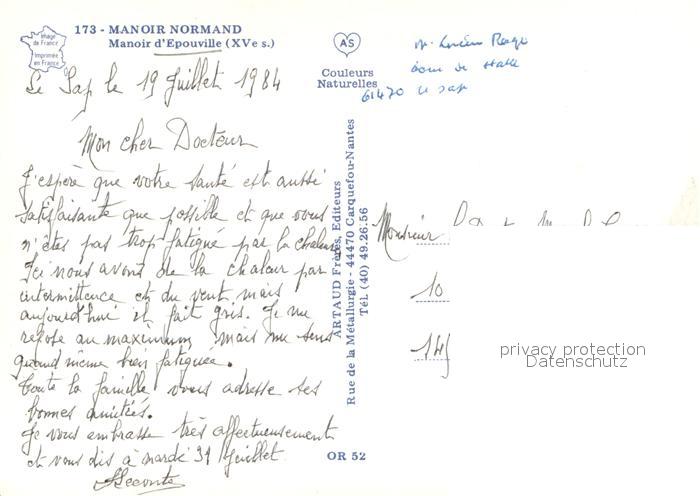 173 - MANOIR NORMAND
Manoir d'Epouville (XVe s.)
Image
de France
Imprimée
en France
AS
Couleurs
Naturelles
61470 le sap
Le Sap le 19 Juillet 1984
Mon cher Docteur
J'espère que votre santé est aussi
satisfaisante que possible et que vous
n'êtes pas trop fatigué par la chaleur
Ici nous avons de la chaleur par
intermittence et du vent mais
aujourd'hui il fait gris. Je me
repose au maximum mais me sens
quand même bien fatiguée.
Toute la famille vous adresse ses
bonnes amitiés.
Je vous embrasse très affectueusement
et vous dis à mardi 31 Juillet
Lecomte
ARTAUD Frères, Editeurs
Rue de la Métallurgie - 44470 Carquefou-Nantes
Tél (40) 49.26.56
OR 52
Monsieur
10
14
privacy protection
Datenschutz